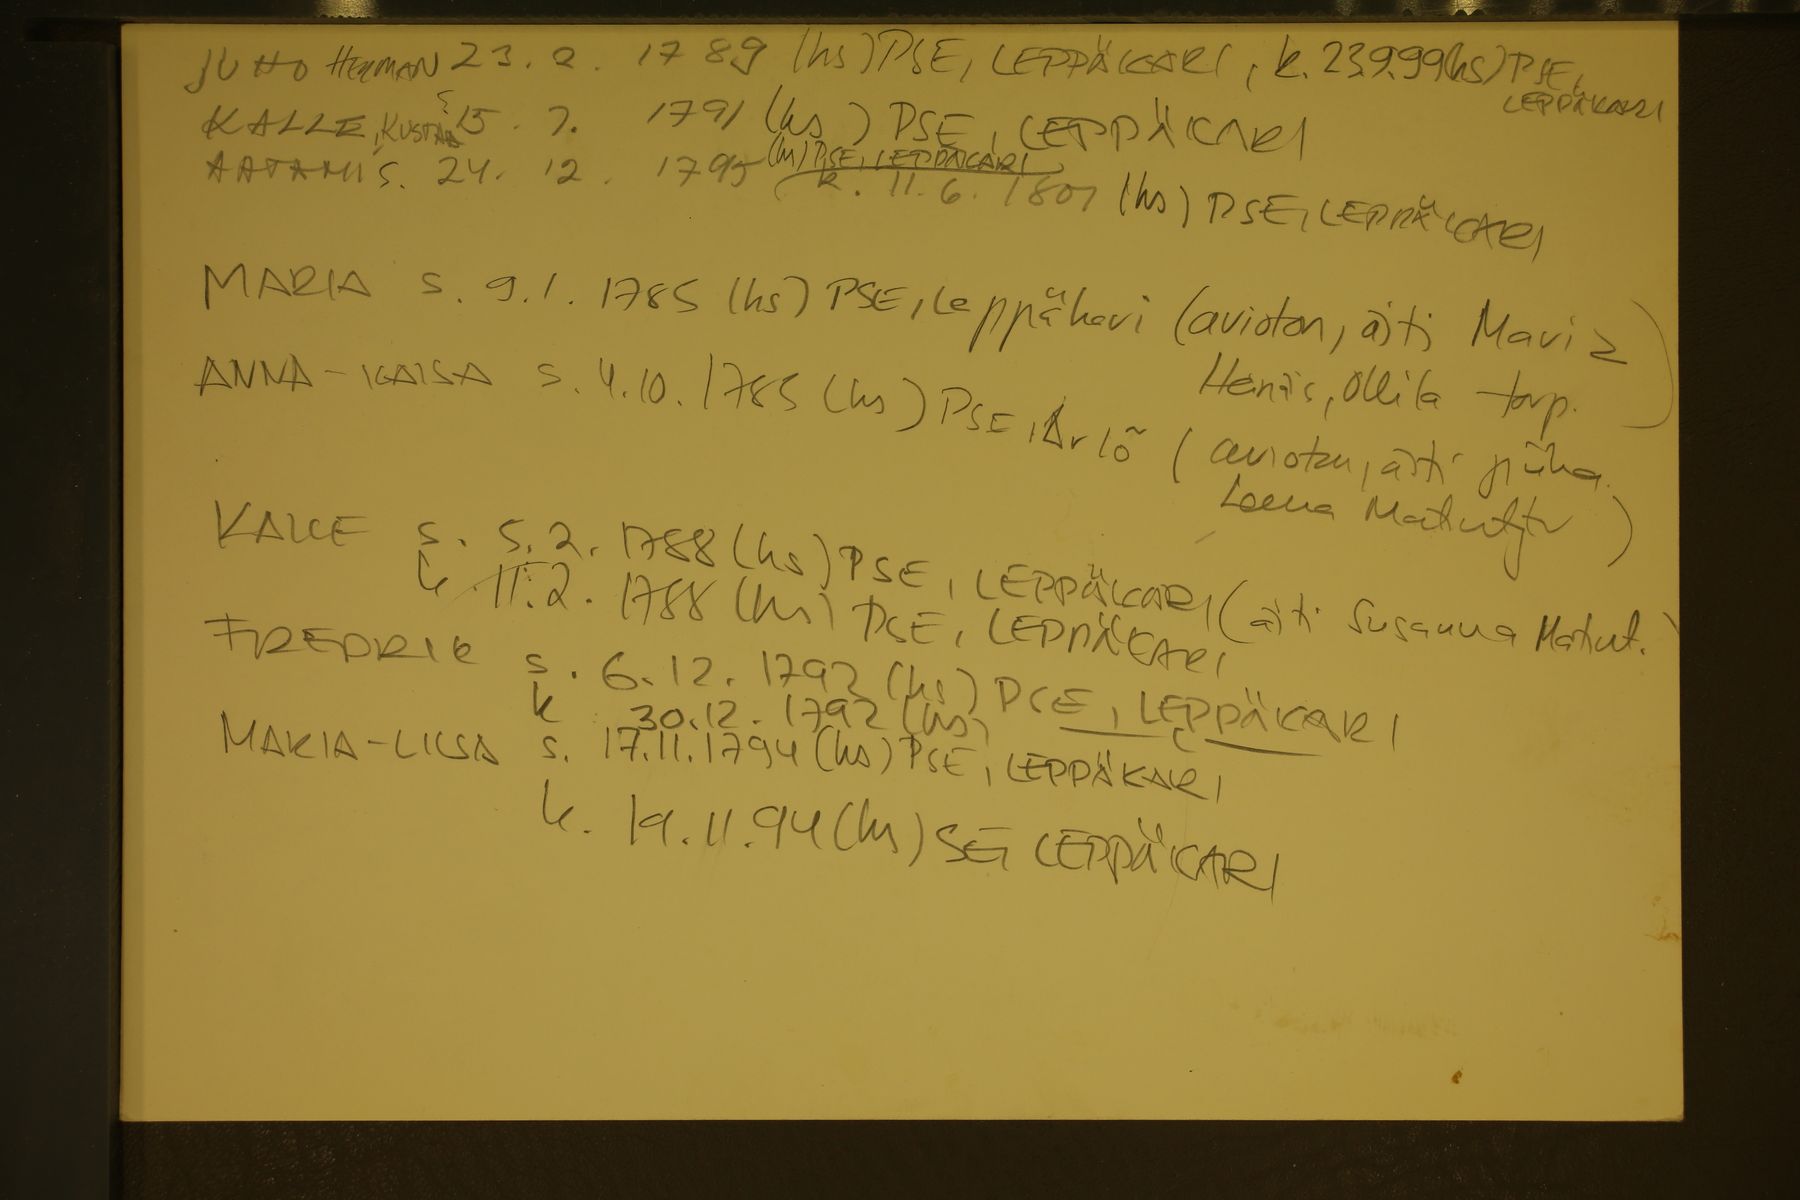 JUHO HERMAN 23. 2. 1789 (hs) PSE, LEPPÄKARI, k. 23.9.99 (hs) PSE,
LEPPÄKARI
KALLE, KUSTAA s. 15. 7. 1791 (hs) PSE, LEPPÄKARI
(hs) PSE, LEPPÄKARI
AATAMI S. 24. 12. 1795 k. 11. 6. 1801 (hs) PSE, LEPPÄKARI
MARIA S. 9.1. 1785 (hs) PSE, Leppäkari (avioton, äiti Maria
Heikint, Ollila torp.)
ANNA-KAISA S. 4.10. 1785 (hs) PSE, Arlö (avioton, äiti piika
Leena Matint)
KALLE s. 5.2. 1788 (hs) PSE, LEPPÄKARI (äiti Susanna Matint.)
k. 11.2. 1788 (hs) PSE, LEPPÄKARI
FREDRIK s. 6.12. 1792 (hs) PSE, LEPPÄKARI
k 30.12. 1792 (hs)
MARIA-LIISA s. 17.11.1794 (hs) PSE, LEPPÄKARI
k. 19.11.94 (hs) SE, LEPPÄKARI